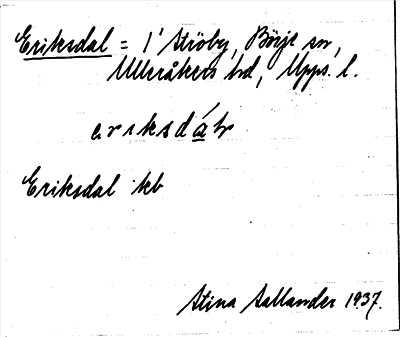 Eriksdal = 1' Ströby, Börje sn,
Ulleråkers hd, Upps. l.
eriksdál
Eriksdal kb
Stina Sallander 1937.